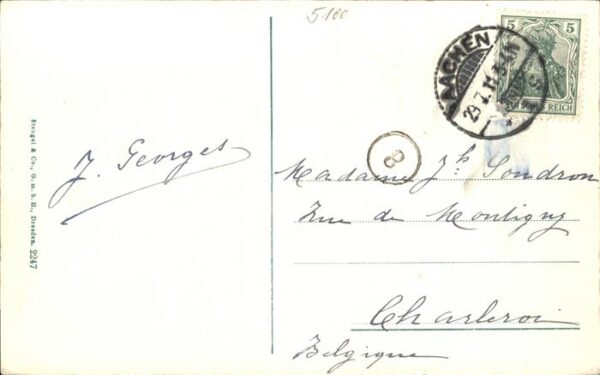 5.100
5 5
DEUTSCHES REICH
AACHEN
29.7.11
J. Georges
B
Madame Jh Sondron
Rue de Montigny
Charleroi
Belgique
Stengel & Co., G. m. b. H., Dresden. 2247